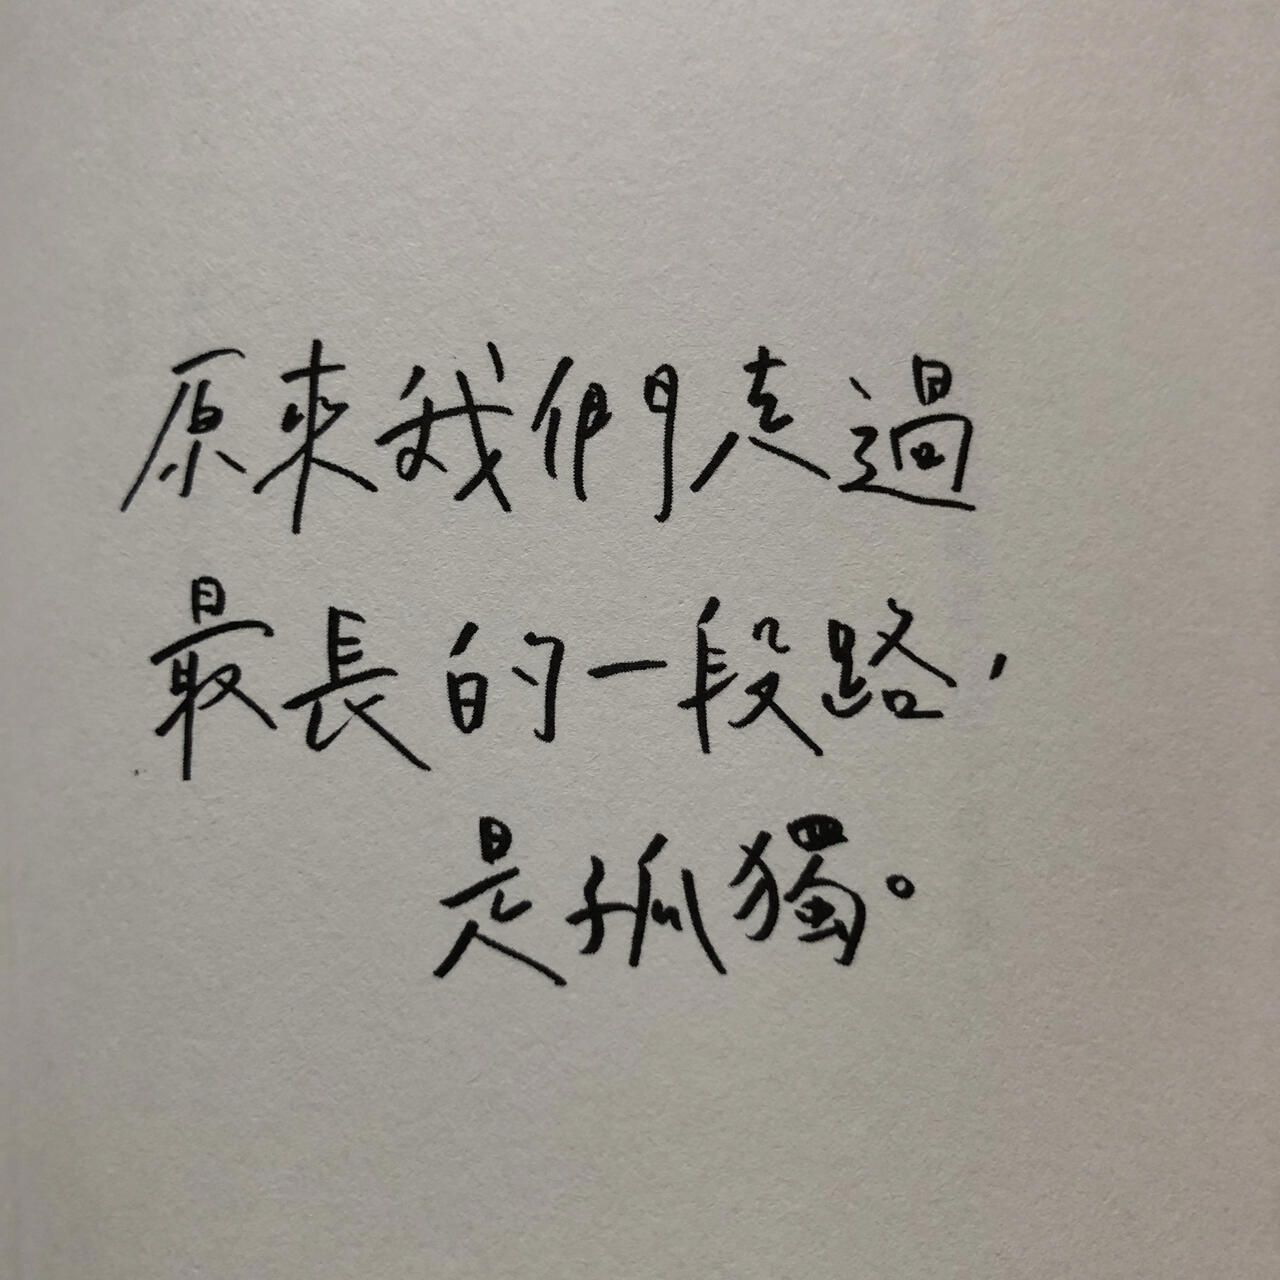 原來我們走過
最長的一段路，
是孤獨。